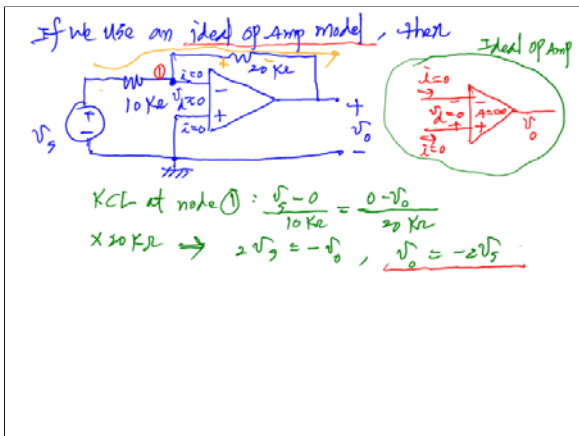 If we use an ideal op Amp model, then
Ideal Op Amp
①
i=0
20 KΩ
+
-
10 KΩ
v_d=0
-
+
i=0
v_s
+
-
+
v_o
-
i=0
v_d=0
-
+
-
+
A=∞
v_o
i=0
KCL at node ① : (v_s - 0)/(10 KΩ) = (0 - v_o)/(20 KΩ)
× 20 KΩ → 2v_s = -v_o , v_o = -2v_s